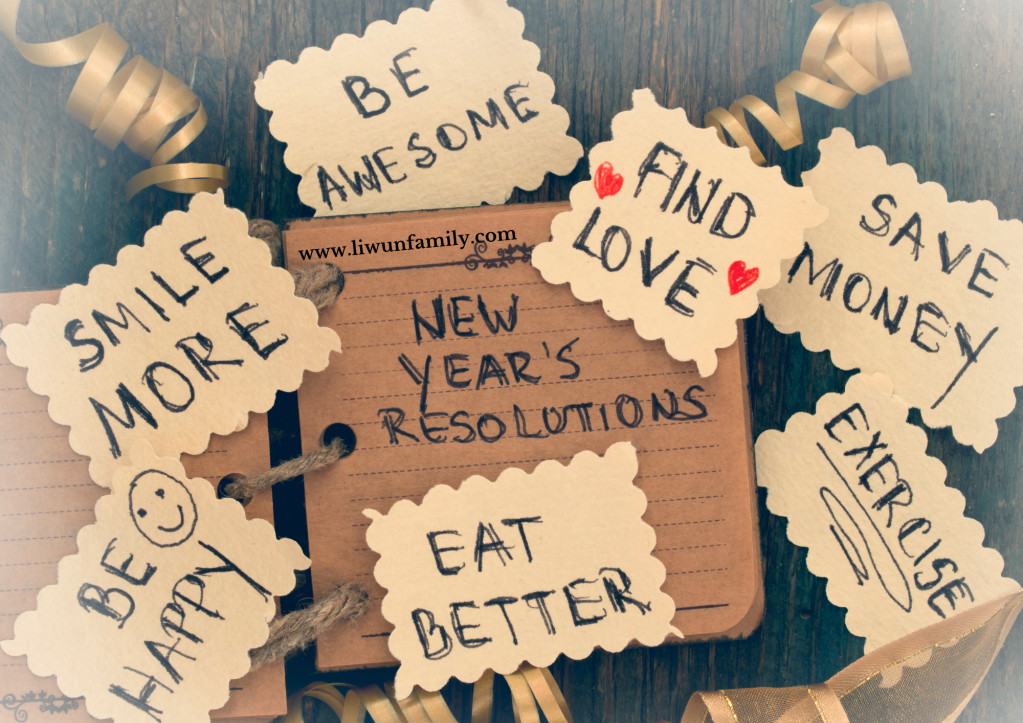 BE
AWESOME
FIND
LOVE
SAVE
MONEY
www.liwunfamily.com
SMILE
MORE
NEW
YEAR'S
RESOLUTIONS
EXERCISE
BE
HAPPY
EAT
BETTER